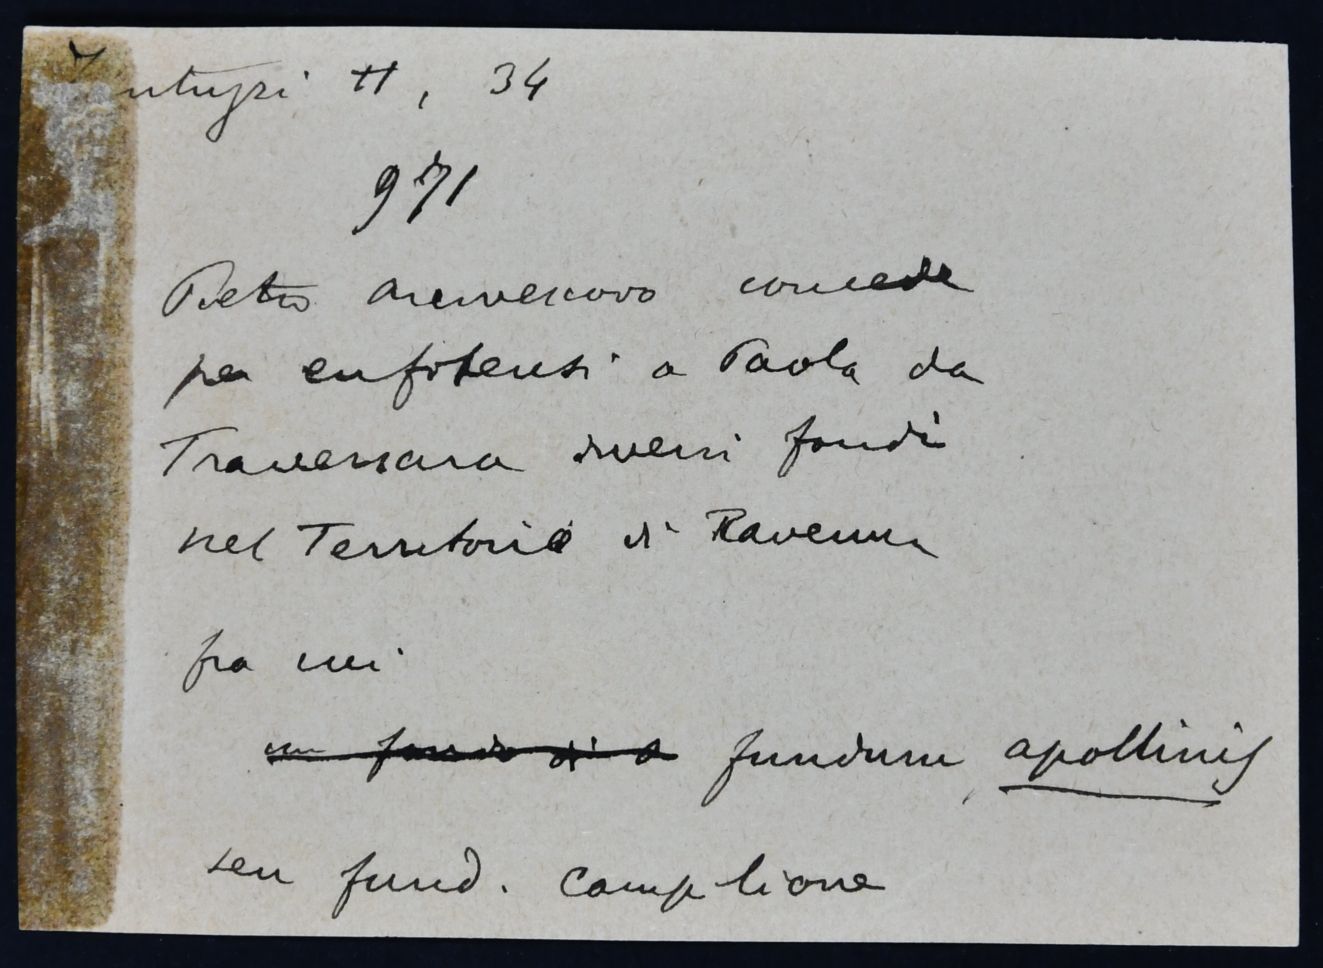 Fantuzzi II, 34
971
Pietro Arcivescovo concede
per enfiteusi a Paola da
Traversara diversi fondi
nel Territorio di Ravenna
fra cui
un fondo di a fundum apollinis
seu fund. Complione